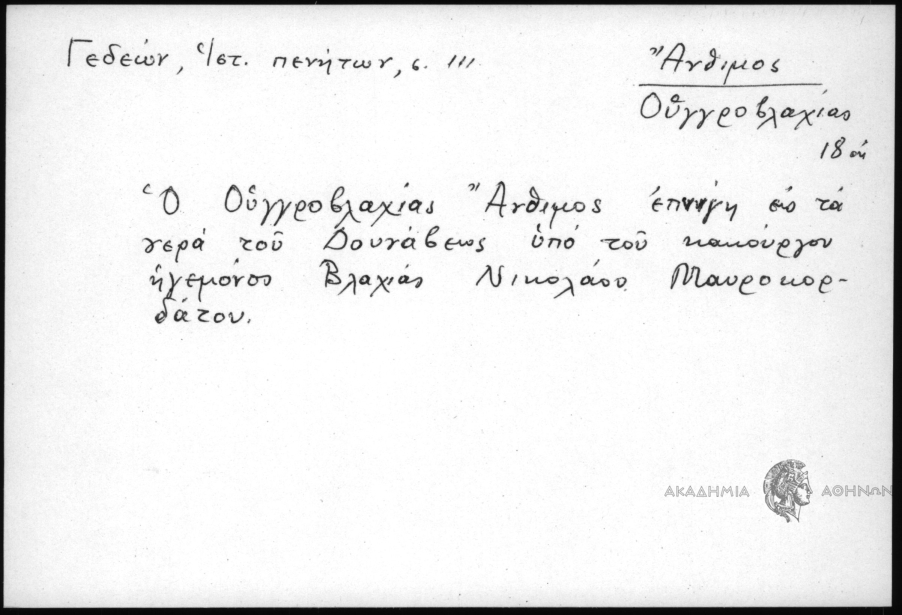 Γεδεών, Ἱστ. πενήτων, σ. 111
Ἄνθιμος
Οὑγγροβλαχίας
18 αι
Ὁ Οὑγγροβλαχίας Ἄνθιμος ἐπνίγη εἰς τά
νερά τοῦ Δουνάβεως ὑπό τοῦ κακούργου
ἡγεμόνος Βλαχίας Νικολάου Μαυροκορ-
δάτου.
ΑΚΑΔΗΜΙΑ ΑΘΗΝΩΝ